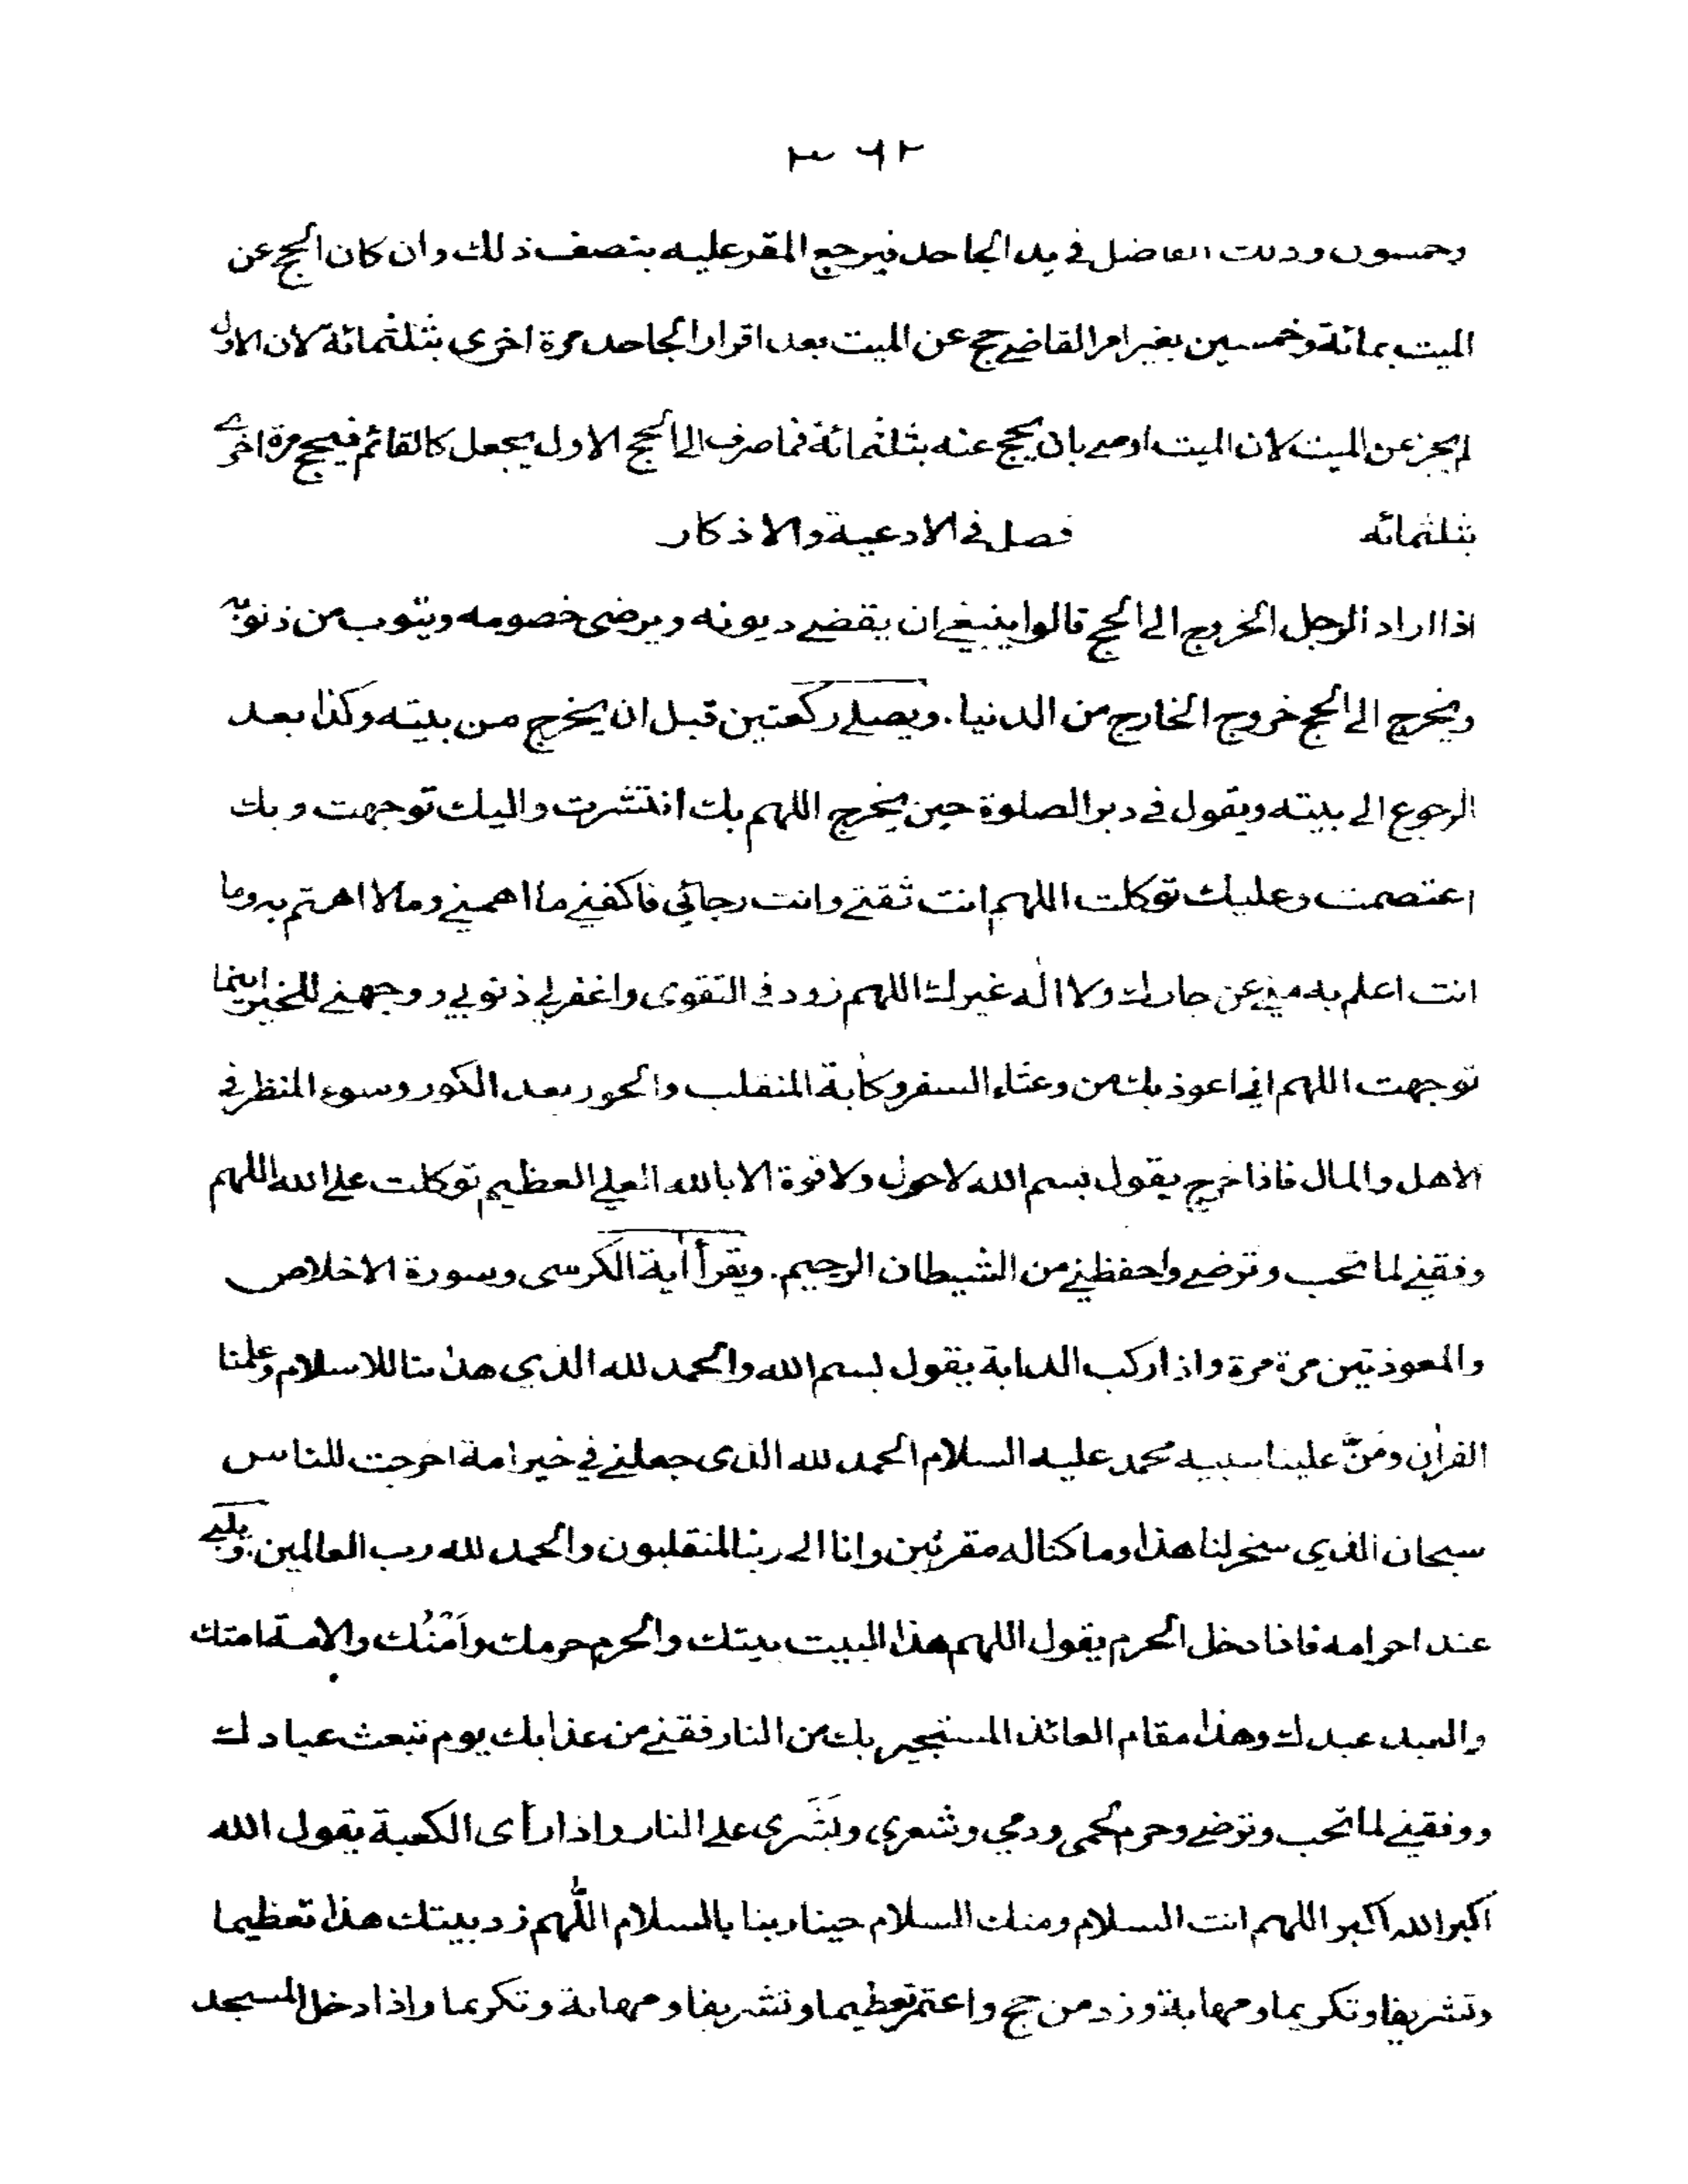 ٣٩٢
وخمسون وذلك الفاضل في يد الجاحد فيرجع المقر عليه بنصف ذلك وان كان الحج عن
الميت بمائة وخمسين بغير امر القاضي حج عن الميت بعد اقرار الجاحد مرة اخرى بثلثمائة لان الاول
لم يجز عن الميت لان الميت اوصي بان يحج عنه بثلثمائة فما صرف الى الحج الاول يجعل كالقائم فيحج مرة اخرى
بثلثمائه فصل في الادعية والاذكار
اذا اراد الرجل الخروج الى الحج قالوا ينبغي ان يقضي ديونه ويرضى خصومه ويتوب من ذنوبه
ويخرج الى الحج خروج الخارج من الدنيا . ويصلي ركعتين قبل ان يخرج من بيته وكذا بعد
الرجوع الى بيته ويقول في دبر الصلوة حين يخرج اللهم بك انتشرت واليك توجهت وبك
اعتصمت وعليك توكلت اللهم انت ثقتي وانت رجائي فاكفني ما اهمني وما لا اهتم به وما
انت اعلم به مني عز جارك ولا اله غيرك اللهم زودني التقوى واغفر لي ذنوبي ووجهني للخير اينما
توجهت اللهم اني اعوذ بك من وعثاء السفر وكأبة المنقلب والحور بعد الكور وسوء المنظر في
الاهل والمال فاذا خرج يقول بسم الله لا حول ولا قوة الا بالله العلي العظيم توكلت على الله اللهم
وفقني لما تحب وترضى واحفظني من الشيطان الرجيم . ويقرأ أية الكرسى وسورة الاخلاص
والمعوذتين مرة مرة واذا ركب الدابة يقول بسم الله والحمد لله الذي هدانا للاسلام وعلمنا
القرأن ومَنَّ علينا بنبيه محمد عليه السلام الحمد لله الذى جعلني في خير امة اخرجت للناس
سبحان الذي سخر لنا هذا وما كنا له مقرنين وانا الى ربنا لمنقلبون والحمد لله رب العالمين . ويلبي
عند احرامه فاذا دخل الحرم يقول اللهم هذا البيت بيتك والحرم حرمك وأمنُك والامة امتك
والعبد عبدك وهذا مقام العائذ المستجير بك من النار فقني من عذابك يوم تبعث عبادك
ووفقني لما تحب وترضى وحرم لحمى ودمي وشعري وبَشَرى على النار واذا رأى الكعبة يقول الله
اكبر الله اكبر اللهم انت السلام ومنك السلام حينا ربنا بالسلام اللّهم زد بيتك هذا تعظيما
وتشريفا وتكريما ومهابة وزد من حج واعتمر تعظيما وتشريفا ومهابة وتكريما واذا دخل المسجد